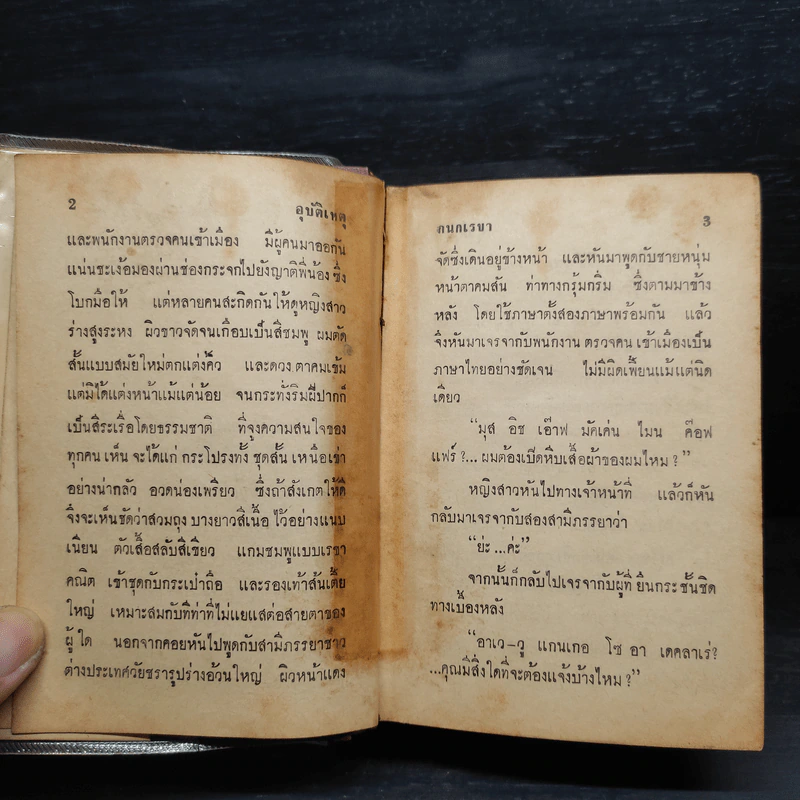 2
อุบัติเหตุ
และพนักงานตรวจคนเข้าเมือง มีผู้คนมาออกัน
แน่นชะเง้อมองผ่านช่องกระจกไปยังญาติพี่น้อง ซึ่ง
โบกมือให้ แต่หลายคนสะกิดกันให้ดูหญิงสาว
ร่างสูงระหง ผิวขาวจัดจนเกือบเป็นสีชมพู ผมตัด
สั้นแบบสมัยใหม่ตกแต่งคิ้ว และดวง ตาคมเข้ม
แต่มิได้แต่งหน้าแม้แต่น้อย จนกระทั่งริมฝีปากก็
เป็นสีระเรื่อโดยธรรมชาติ ที่จูงความสนใจของ
ทุกคน เห็น จะได้แก่ กระโปรงทั้ง ชุดสั้น เหนือเข่า
อย่างน่ากลัว อวดน่องเพรียว ซึ่งถ้าสังเกตให้ดี
จึงจะเห็นชัดว่าสวมถุง บางยาวสีเนื้อ ไว้อย่างแนบ
เนียน ตัวเสื้อสลับสีเขียว แกมชมพูแบบเรขา
คณิต เข้าชุดกับกระเป๋าถือ และรองเท้าส้นเตี้ย
ใหญ่ เหมาะสมกับทีท่าที่ไม่แยแสต่อสายตาของ
ผู้ใด นอกจากคอยหันไปพูดกับสามีภรรยาชาว
ต่างประเทศวัยชรารูปร่างอ้วนใหญ่ ผิวหน้าแดง
กนกเรขา
3
จัดซึ่งเดินอยู่ข้างหน้า และหันมาพูดกับชายหนุ่ม
หน้าตาคมสัน ท่าทางกรุ้มกริ่ม ซึ่งตามมาข้าง
หลัง โดยใช้ภาษาตั้งสองภาษาพร้อมกัน แล้ว
จึงหันมาเจรจากับพนักงาน ตรวจคน เข้าเมืองเป็น
ภาษาไทยอย่างชัดเจน ไม่มีผิดเพี้ยนแม้แต่นิด
เดียว
“มุส อิช เอ๊าฟ มัคเค่น ไมน ค๊อฟ
แฟร์ ?... ผมต้องเปิดหีบเสื้อผ้าของผมไหม ?”
หญิงสาวหันไปทางเจ้าหน้าที่ แล้วก็หัน
กลับมาเจรจากับสองสามีภรรยาว่า
“ย่ะ ...ค่ะ”
จากนั้นก็กลับไปเจรจากับผู้ที่ ยืนกระชั้นชิด
ทางเบื้องหลัง
“อาเว-วู แกนเกอ โซ อา เดคลาเร่?
...คุณมีสิ่งใดที่จะต้องแจ้งบ้างไหม ?”